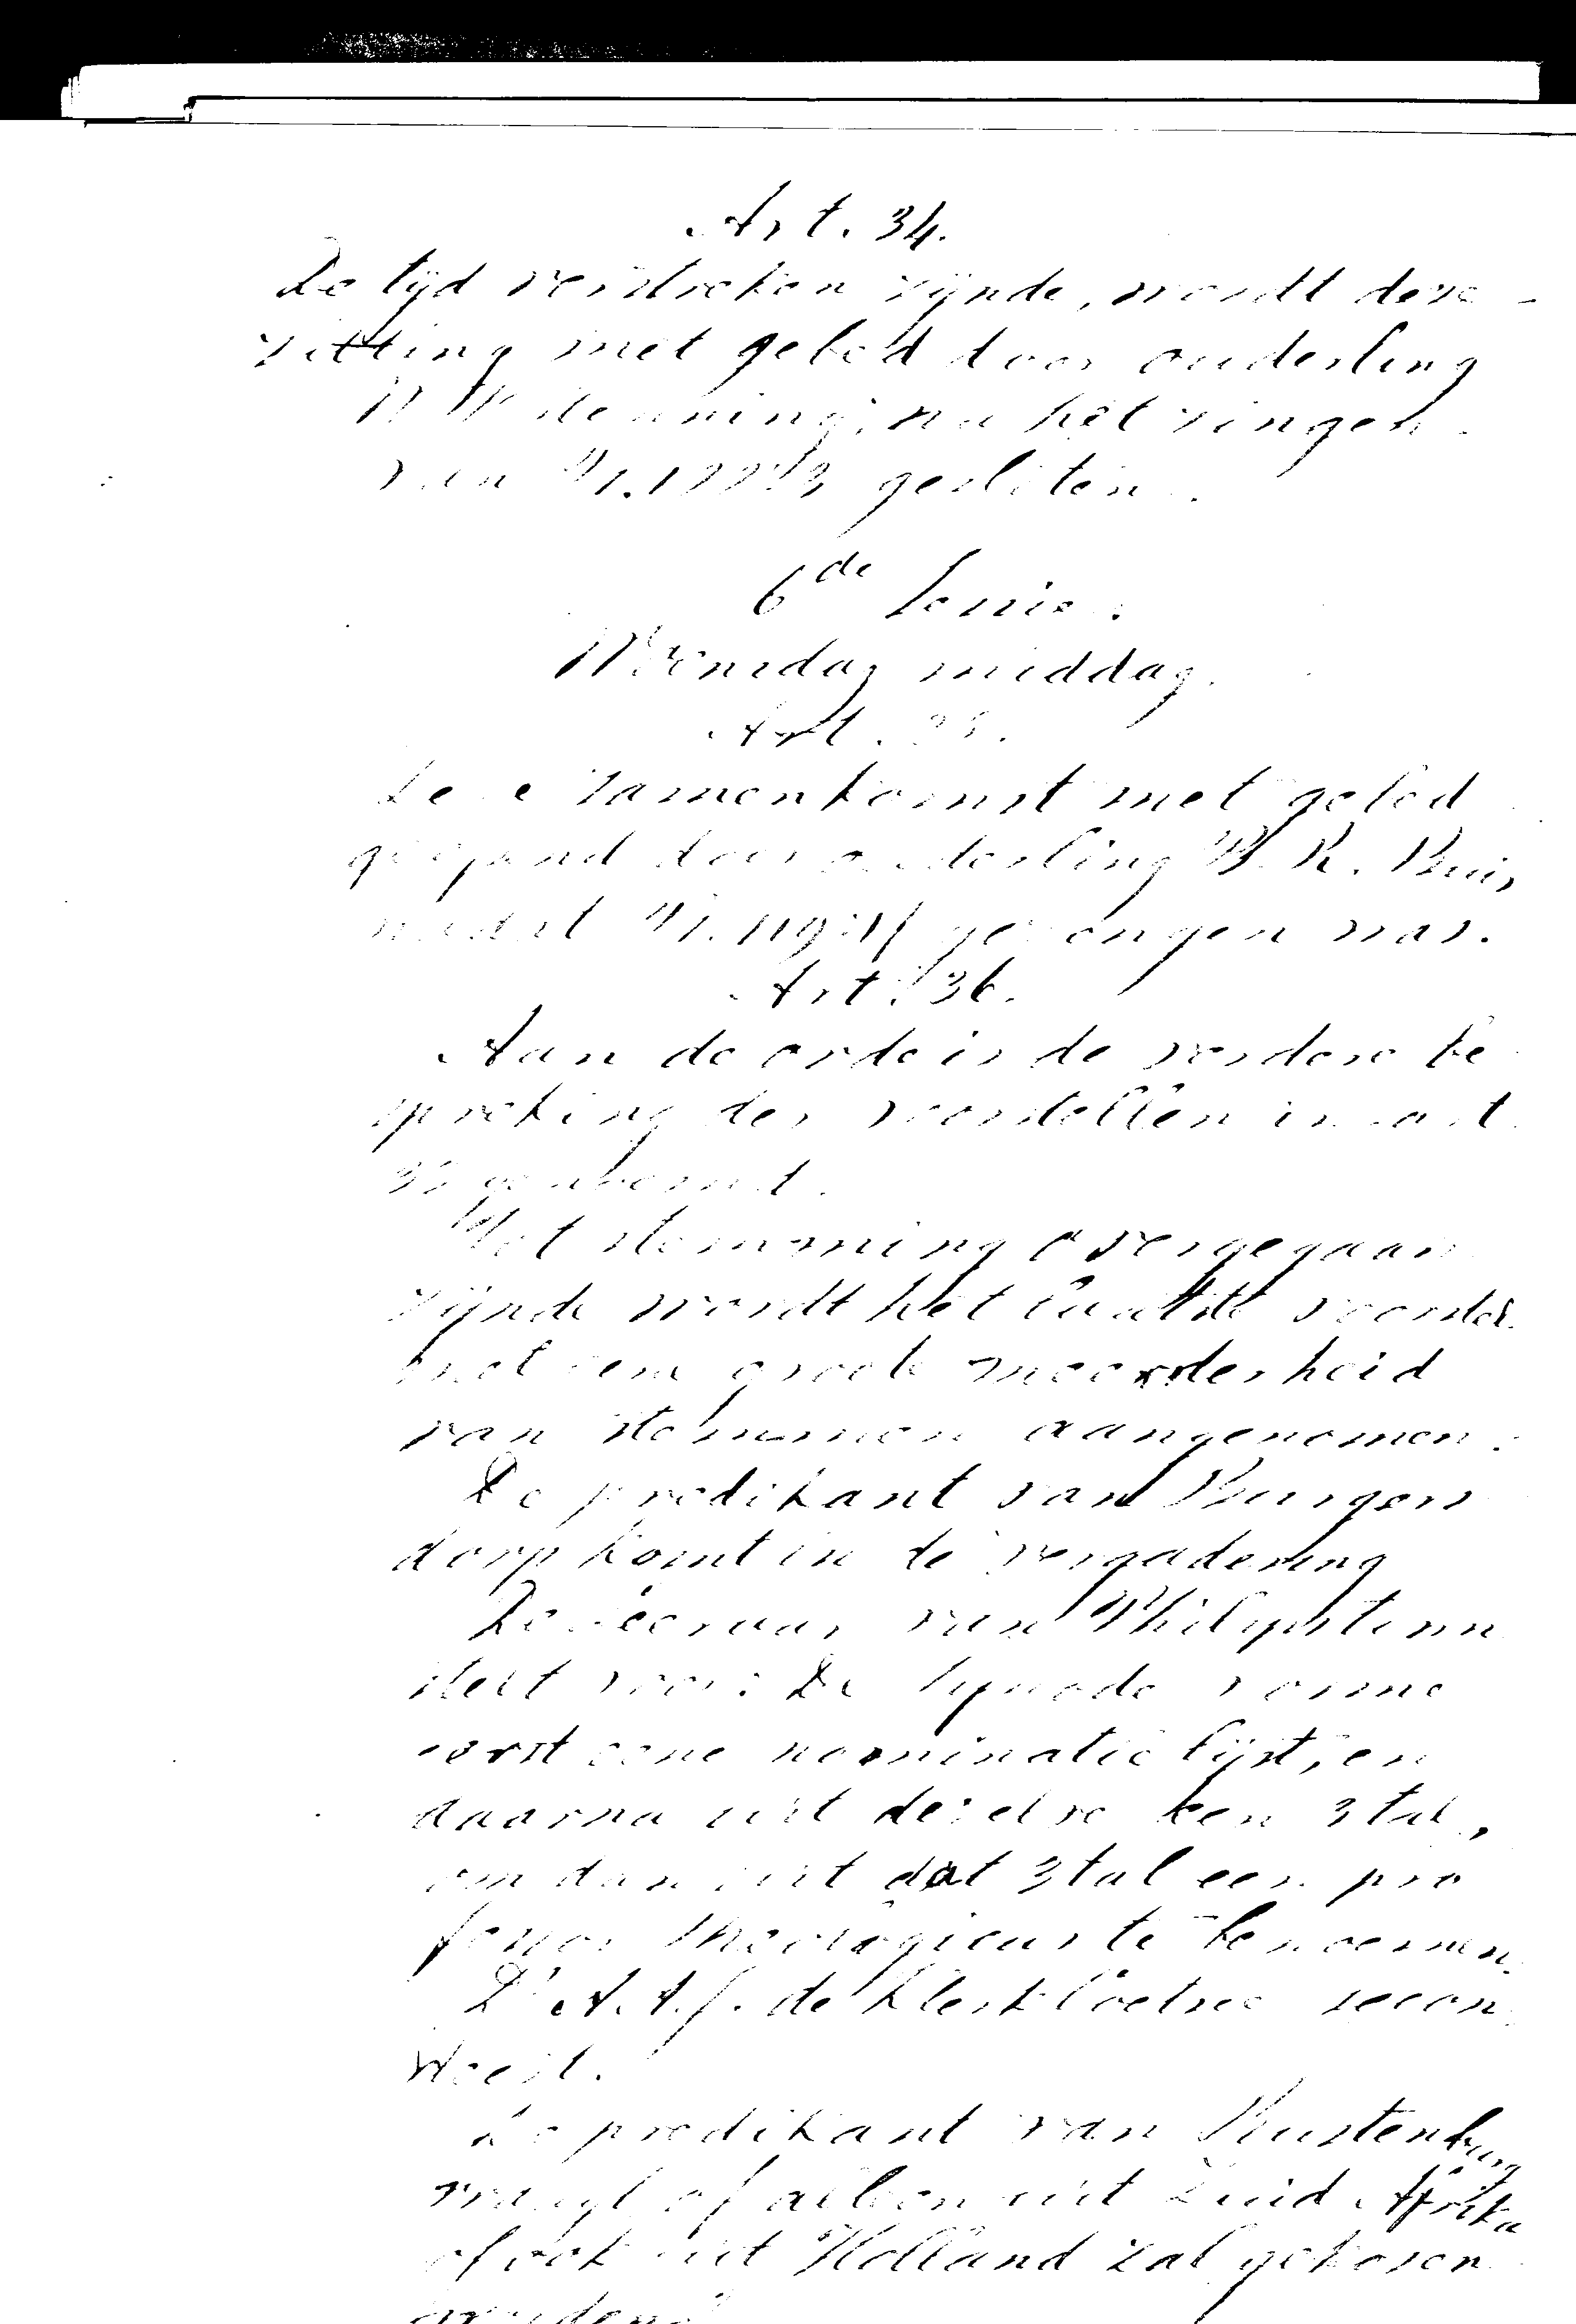 Art. 34.
De tijd verstreken zijnde, wordt deze
zitting met gebed door ouderling
na het zingen
van gesloten.
6de Sessie.
Woensdag middag.
Art. 35.
Deze zamenkomst met gebed
geopend door ouderling P. R. Buis
nadat gezongen was.
Art. 36.
Aan de orde is de verdere be
spreking der voorstellen in art
genoemd.
Tot stemming overgegaan
zijnde wordt het laatste voorstel
met eene groote meerderheid
van stemmen aangenomen.
De predikant van Burgers
dorp komt in de vergadering
De leeraar van Philipstown
stelt voor: De Synode vorme
eerst eene nominatie lijst, en
daarna uit dezelve een 3 tal,
om dan uit dat 3 tal een pro
fessor Theologicus te benoemen.
Ds A. A. J. de Klerk Coetsee secon
deert.
De predikant van Rustenburg
vraagt of alleen uit Zuid Afrika
of ook uit Holland zal gekozen
worden.